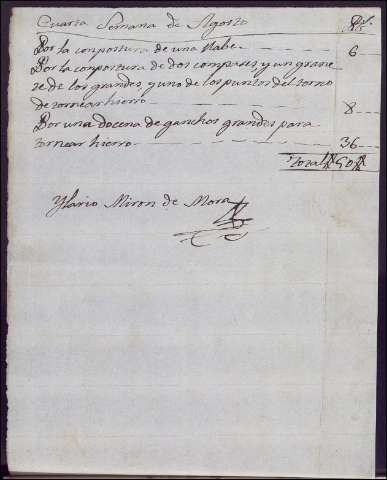 Quarta Semana de Agosto Rs.
Por la conpostura de una llabe 6
Por la conpostura de dos conpases y un grane
te de los grandes, y uno de los puntos del torno
de tornear hierro 8
Por una docena de ganchos grandes para
tornear hierro 36
Total 50
Ylario Miron de Mora